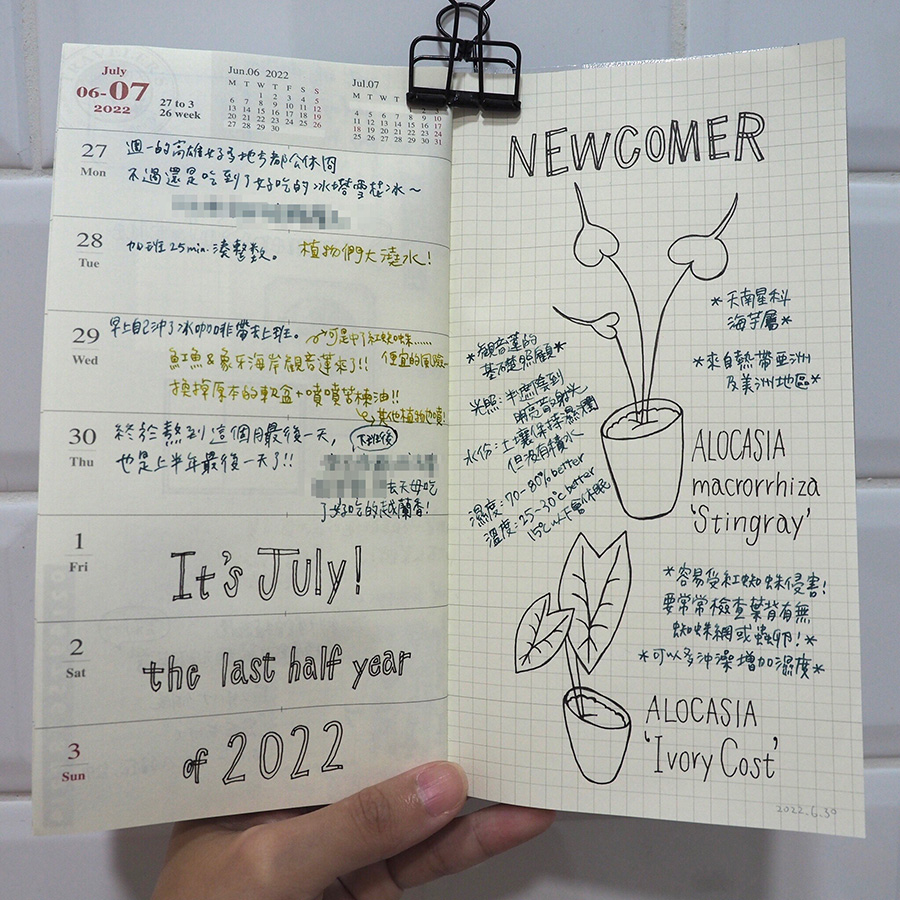 July
06-07
2022
27 to 3
26 week
Jun.06 2022
M T W T F S S
1 2 3 4 5
6 7 8 9 10 11 12
13 14 15 16 17 18 19
20 21 22 23 24 25 26
27 28 29 30
Jul.07
M T W T
4 5 6 7 8 9 10
11 12 13 14 15 16 17
18 19 20 21 22 23 24
25 26 27 28 29 30 31
27
Mon
週一的高雄好多地方都公休囧
不過還是吃到了好吃的冰塔雪花冰~
28
Tue
加班25min.湊整數。 植物們大澆水!
29
Wed
早上自己沖了冰咖啡帶去上班。
可是中了紅蜘蛛……
魟魚&象牙海岸觀音蓮來了!! 便宜的風險
換掉原本的軟盆+噴噴苦楝油!!
其他植物也噴!
30
Thu
終於熬到這個月最後一天,
也是上半年最後一天了!!
下班後
去天母吃
了好吃的越蘭香!
1
Fri
It's July!
2
Sat
the last half year
3
Sun
of 2022
NEWCOMER
*天南星科
海芋屬*
*來自熱帶亞洲
及美洲地區*
*觀音蓮的
基礎照顧*
光照:半遮蔭到
明亮散射光
水份:土壤保持濕潤
但沒有積水
濕度:70-80% better
溫度:25-30°c better
15°c以下會休眠
ALOCASIA
macrorrhiza
'Stingray'
*容易受紅蜘蛛侵害!
要常常檢查葉背有無
蜘蛛網或蟲卵!*
*可以多沖澡增加濕度*
ALOCASIA
'Ivory Cost'
2022.6.30